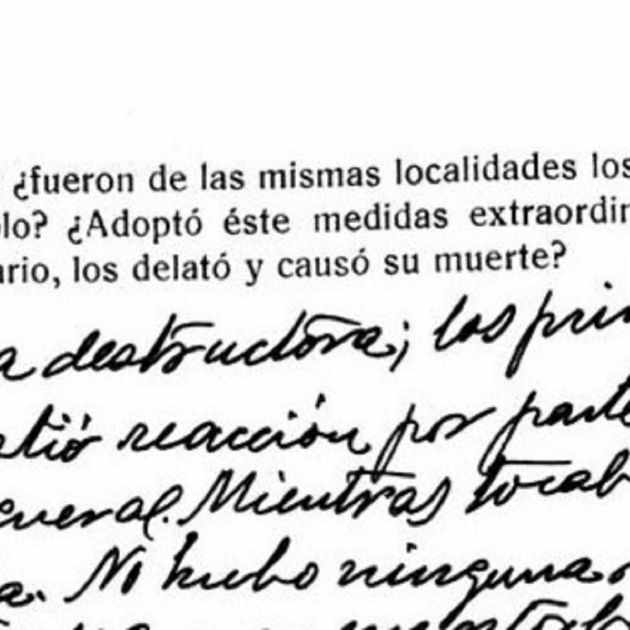 ¿fueron de las mismas localidades los
lo? ¿Adoptó éste medidas extraordin
ario, los delató y causó su muerte?
a destructora; los prin
tió reacción por parte
eneral. Mientras tocab
a. No hubo ninguna